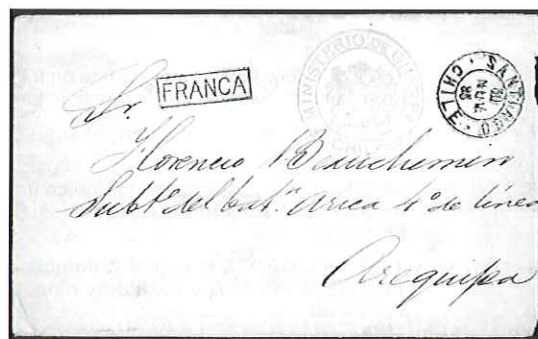 FRANCA
MINISTERIO DE GUERRA
CHILE
SANTIAGO
CHILE
Sr.
Florencio Beauchemin
Subte. del bat.n Arica 4º de línea
Arequipa